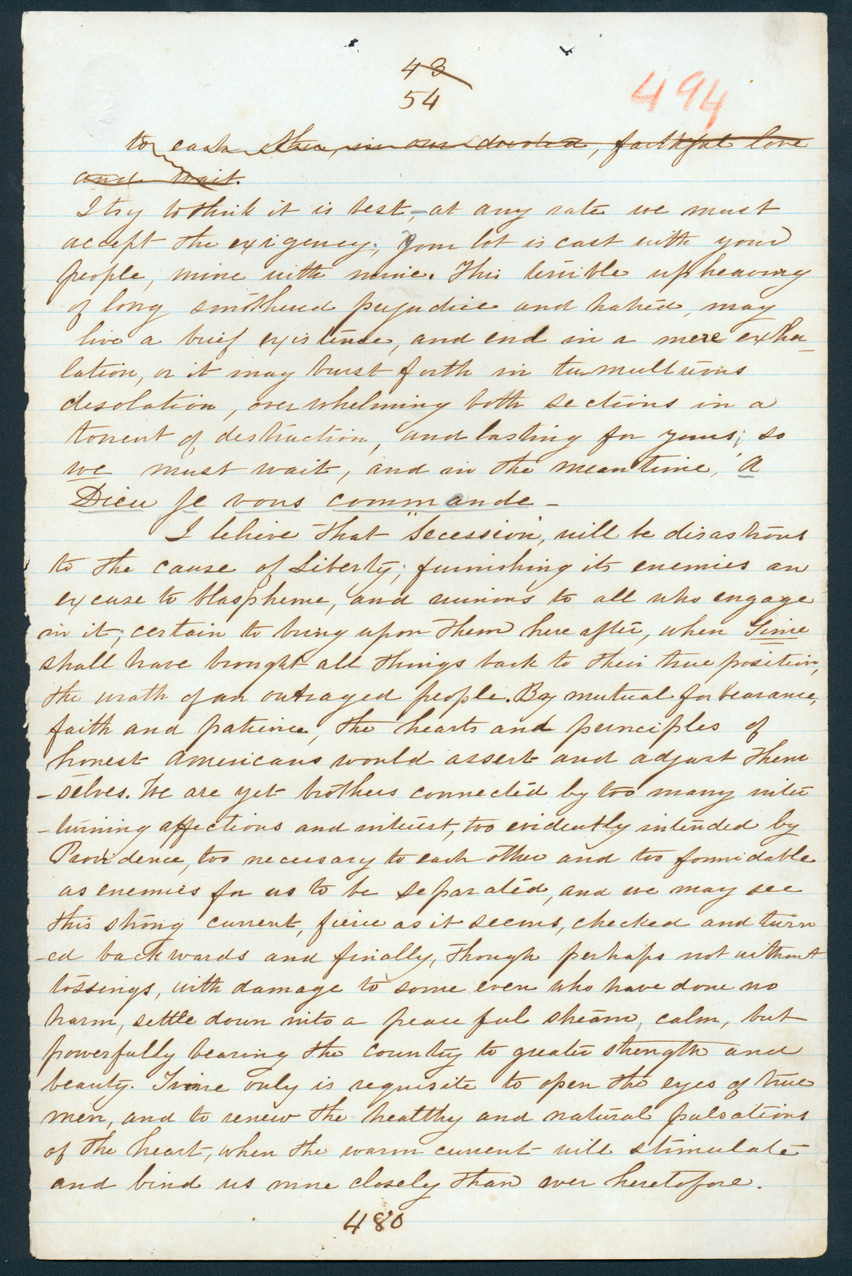 43
54
494
to each other, in our devoted, faithful love
and wait.
I try to think it is best,– at any rate we must
accept the exigency; your lot is cast with your
people, mine with mine. This terrible upheaving
of long smothered prejudice and hatred, may
live a brief existence, and end in a mere exha-
lation, or it may burst forth in tumultuous
desolation, overwhelming both sections in a
torrent of destruction, and lasting for years; so
we must wait, and in the meantime, a
Dieu je vous commande –
I believe that "Secession", will be disastrous
to the cause of Liberty; furnishing its enemies an
excuse to blaspheme, and ruinous to all who engage
in it; certain to bring upon them hereafter, when Time
shall have brought all things back to their true position,
the wrath of an outraged people. By mutual forbearance,
faith and patience, the hearts and principles of
honest Americans would assert and adjust them
-selves. We are yet brothers connected by too many inter
-twining affections and interest, too evidently intended by
Providence, too necessary to each other and too formidable
as enemies for us to be separated, and we may see
this strong current, fierce as it seems, checked and turn
-ed backwards and finally, though perhaps not without
tossings, with damage to some even who have done no
harm, settle down into a peaceful stream, calm, but
powerfully bearing the country to greater strength and
beauty. Time only is requisite to open the eyes of true
men, and to renew the healthy and natural pulsations
of the heart, when the warm current will stimulate
and bind us more closely than ever heretofore.
480